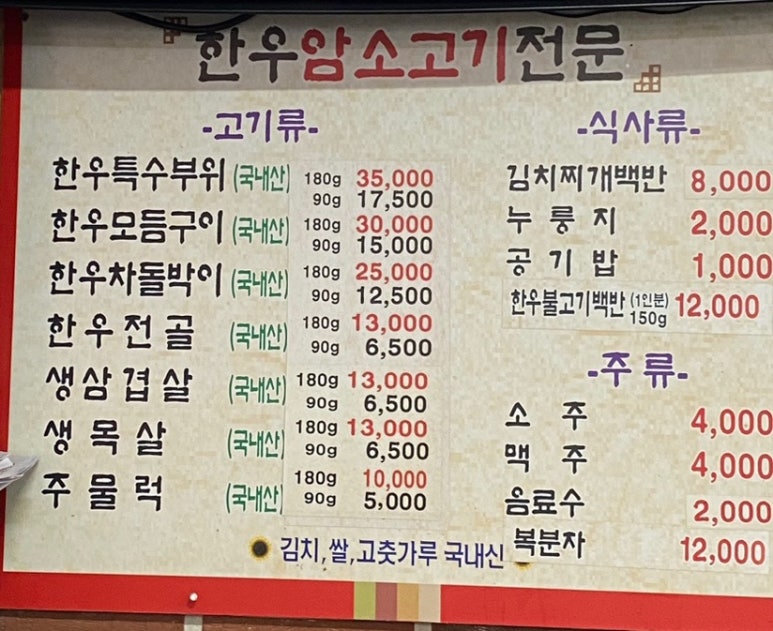 한우암소고기전문
-고기류-
한우특수부위 (국내산) 180g 35,000
90g 17,500
한우모듬구이 (국내산) 180g 30,000
90g 15,000
한우차돌박이 (국내산) 180g 25,000
90g 12,500
한우전골 (국내산) 180g 13,000
90g 6,500
생삼겹살 (국내산) 180g 13,000
90g 6,500
생목살 (국내산) 180g 13,000
90g 6,500
주물럭 (국내산) 180g 10,000
90g 5,000
김치,쌀,고춧가루 국내신
-식사류-
김치찌개백반 8,000
누룽지 2,000
공기밥 1,000
한우불고기백반 (1인분) 150g 12,000
-주류-
소주 4,000
맥주 4,000
음료수 2,000
복분자 12,000